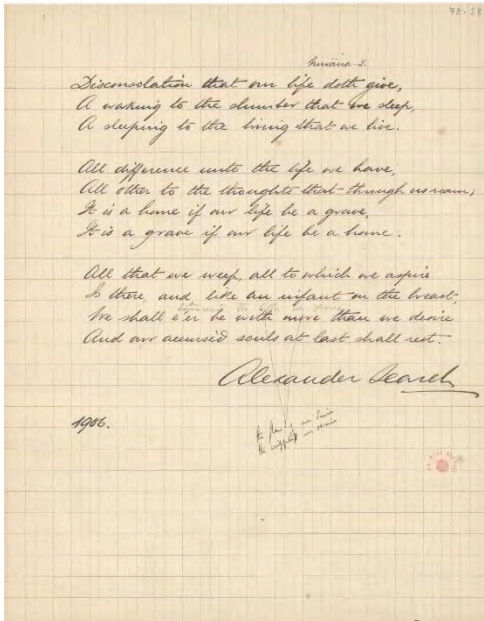 78-28
Disconsolation that our life doth give,
A waking to the slumber that we sleep,
A sleeping to the living that we live.
All difference unto the life we have,
All other to the thoughts that through us roam;
It is a home if our life be a grave,
It is a grave if our life be a home.
All that we weep, all to which we aspire
Is there, and, like an infant on the breast,
We shall e'er be with more than we desire
And our accursèd souls at last shall rest.
Alexander Search
1906.